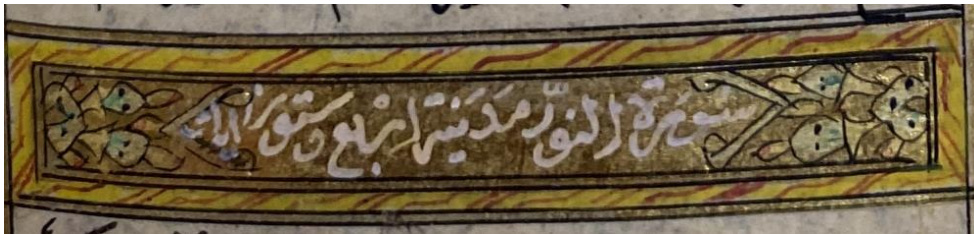 سورة النور مدنية اربع وستون اياته